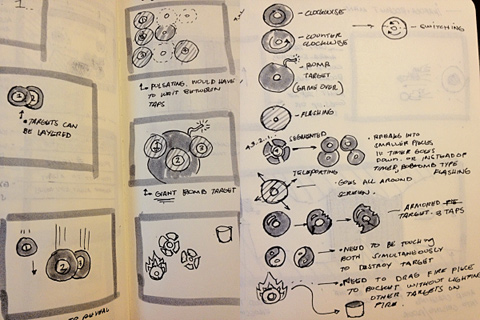 1
TARGETS CAN
BE LAYERED
2
1
2
PULSATING, WOULD HAVE
TO WAIT BETWEEN
TAPS
1
2
GIANT BOMB TARGET
- CLOCKWISE
- COUNTER
CLOCKWISE
- SWITCHING
- BOMB
TARGET
(GAME OVER)
- FLASHING
SEGMENTED
- BREAKS INTO
SMALLER PIECES
IF TIMER GOES
DOWN. OR INSTEAD OF
TIMER, BOBOMB TYPE
FLASHING
TELEPORTING
- GOES ALL AROUND
SCREEN.
- ARMORED
TARGET. 3 TAPS
- NEED TO BE TOUCHING
BOTH SIMULTANEOUSLY
TO DESTROY TARGET
- NEED TO DRAG FIRE PIECE
TO BUCKET WITHOUT LIGHTING
OTHER TARGETS ON
FIRE.